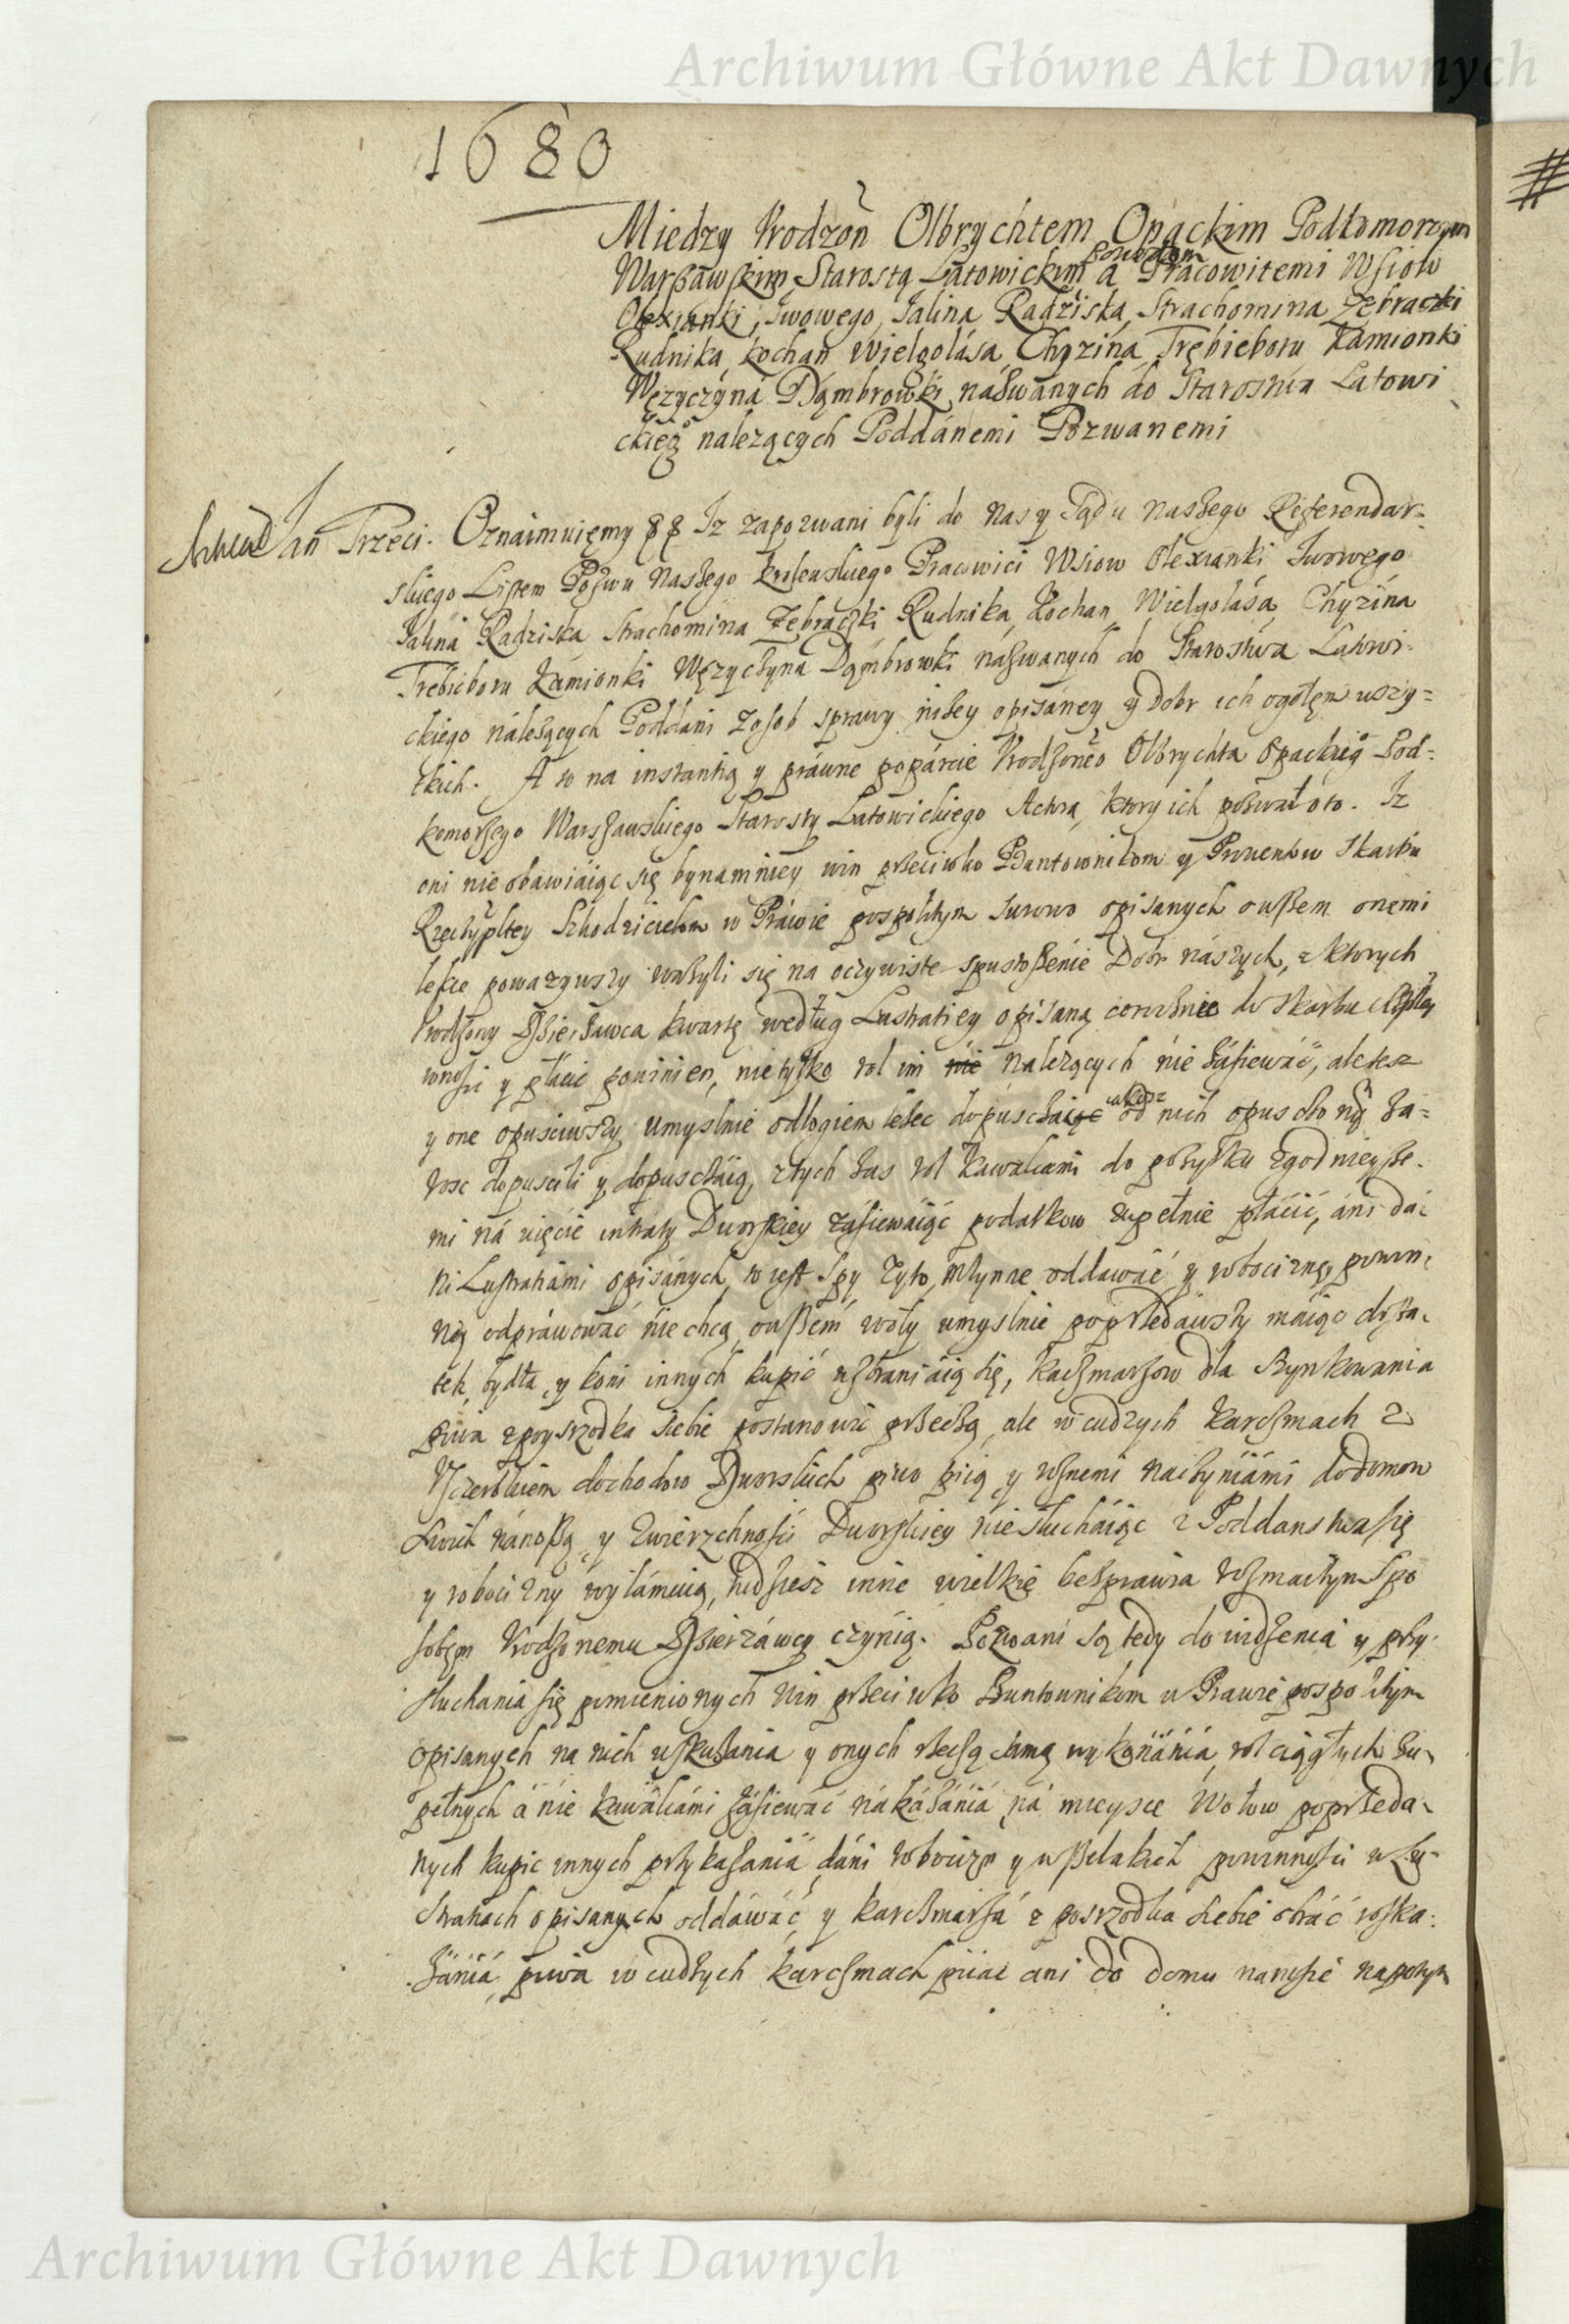 Archiwum Główne Akt Dawnych
1680
Miedzy Vrodzon Olbrychtem Opackim Podkomorzym
Warszawskim, Starostą Latowickim Powodem a Pracowitemi Wsiow
Olexianki, Iwowego, Jalina Radziska, Strachomina Zebraczki
Rudnika, Kochan Wielgolása, Chyzina, Trębieboru Kamionki
Węzyczyná Dąmbrowki nazwanych do Starostwa Latowi
ckieg należących Poddánemi Pozwanemi
Jan Trzeci. Oznaimuięmy Iz zapozwani byli do nas y Sądu naszego Referendar-
skiego Listem Pozwu naszego krolewskiego Pracowici Wsiow Olexianki Iwowego
Jalina Radziska Strachomina Zębraczki Rudnika, Kochan, Wielgolásá, Chyzina
Trebieboru Kámionki Węzyczyna Dąmbrowki názwanych do Starostwa Latowi-
ckiego nálezących Poddani zosob sprawy niżey opisáney y dobr ich ogołem wszy=
tkich. A to na instantią y práwne popárcie Vrodzoneo Olbrychta Opackieg Pod-
komorzego Warszawskiego Starosty Latowickiego Actora, ktory ich pozwał oto. Iz
oni nie obawiáiąc się bynamniey win przeciwko Buntownikom y Prouentow Skarbu
Rzeczyptey Szkodzicielom w Práwie pospolitym surowo opisanych owszem onemi
lekce powazywszy ważyli się na oczywiste spustoszénie Dobr nászych, z ktorych
Vrodzony Dzierżawca kwartę według Lustratiey opisaną corocznie do Skarbu
wnosic y płácic powinien, nietylko rol im nie nalezących nie zásiewáć, ale tesz
y one opusciwszy umyslnie odłogiem leżec dopuszczaiąc od nich opusczo ną za=
rosc dopuscili y dopusczáią, z tych zas rol kawalcami do pozytku zgodnieysze-
mi ná uięcie intraty Dworskiey zásiewáiąc podatkow zupełnie płácić, áni dá-
ni Lustratiámi opisánych, to iest Spy Zyto, młynne oddawáć y robociznęy powin-
ney odpráwowáć niechcą, owszem woły umyslnie poprzedawszy maiąc dosta-
tek, bydła y koni innych kupić wzbraniáią się, Karczmarzow dla Szynkowania
piwa z posrzodka siebie postanowic przeczą, ale w cudzych karczmach z
Vszczerbkiem dochodow Dworskich piwo piią y rożnemi naczyniámi do domow
swoich nánoszą, y Zwierzchnosci Dworskiey niesłucháiąc z Poddanstwa się
y robocizny wyłámuią, tudziesz inne wielkie bezprawia rozmaitym Spo
sobem Vrodzonemu Dzierzáwcy czynią. Pozwani są tedy do widzenia y przy-
słuchania się pomienionych win przeciwko Buntownikom w Prawie pospolitym
opisanych na nich wskazania y onych rzeczą samą wykonánia, rol ciągłych zu-
pełnych á nie kawalcámi zásiewáć nákazánia ná mieysce Wołow poprzeda-
nych kupic innych przykazania, dáni robocizn y wszelakich powinnosci w Lu-
stratiach opisanych oddáwáć, y karczmarzá z posrzodka siebie obráć roska-
zánia, piwa w cudzych karczmach piiac ani do domu nanosić napotym
Archiwum Główne Akt Dawnych